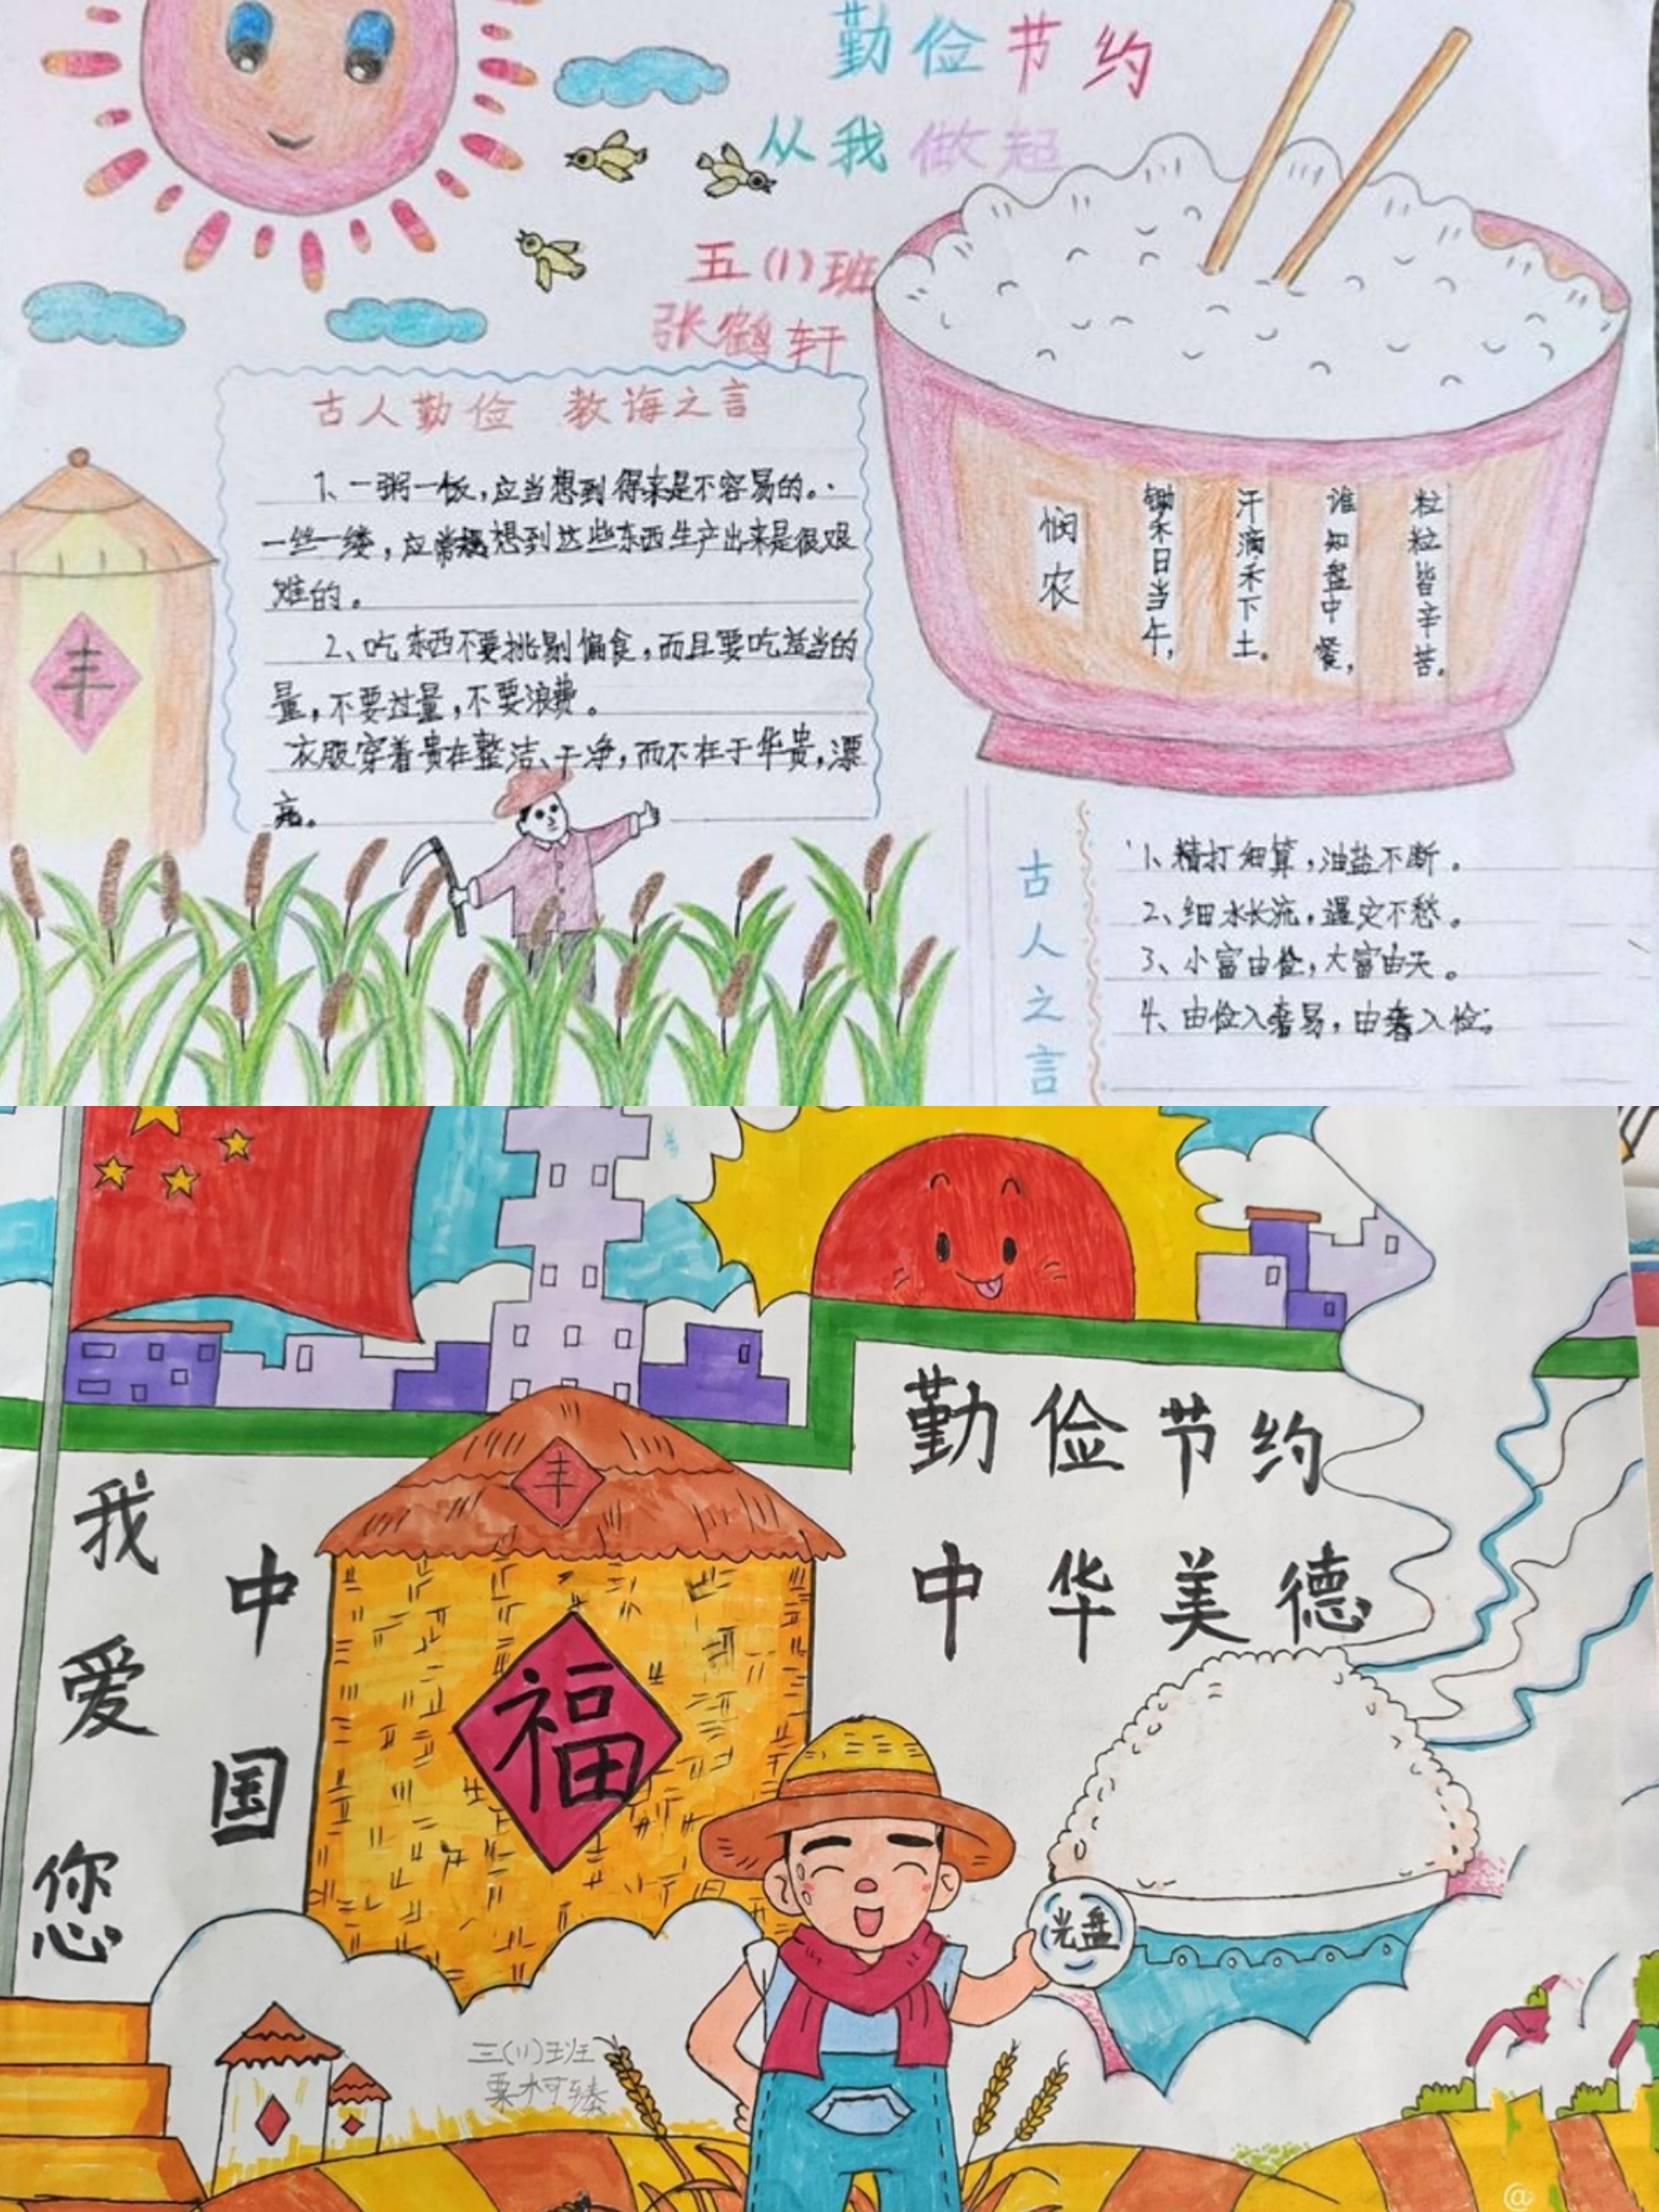 勤俭节约
从我做起
五(1)班
张鹤轩
古人勤俭 教诲之言
1、一粥一饭，应当想到得来是不容易的。
一丝一缕，应常想想到这些东西生产出来是很艰
难的。
2、吃东西不要挑剔偏食，而且要吃适当的
量，不要过量，不要浪费。
衣服穿着贵在整洁、干净，而不在于华贵，漂
亮。
丰
悯农
锄禾日当午，
汗滴禾下土。
谁知盘中餐，
粒粒皆辛苦。
古人之言
1、精打细算，油盐不断。
2、细水长流，遇灾不愁。
3、小富由俭，大富由天。
4、由俭入奢易，由奢入俭
勤俭节约
中华美德
我爱你
中国
丰
福
光盘
三(11)班
栗柯臻
@